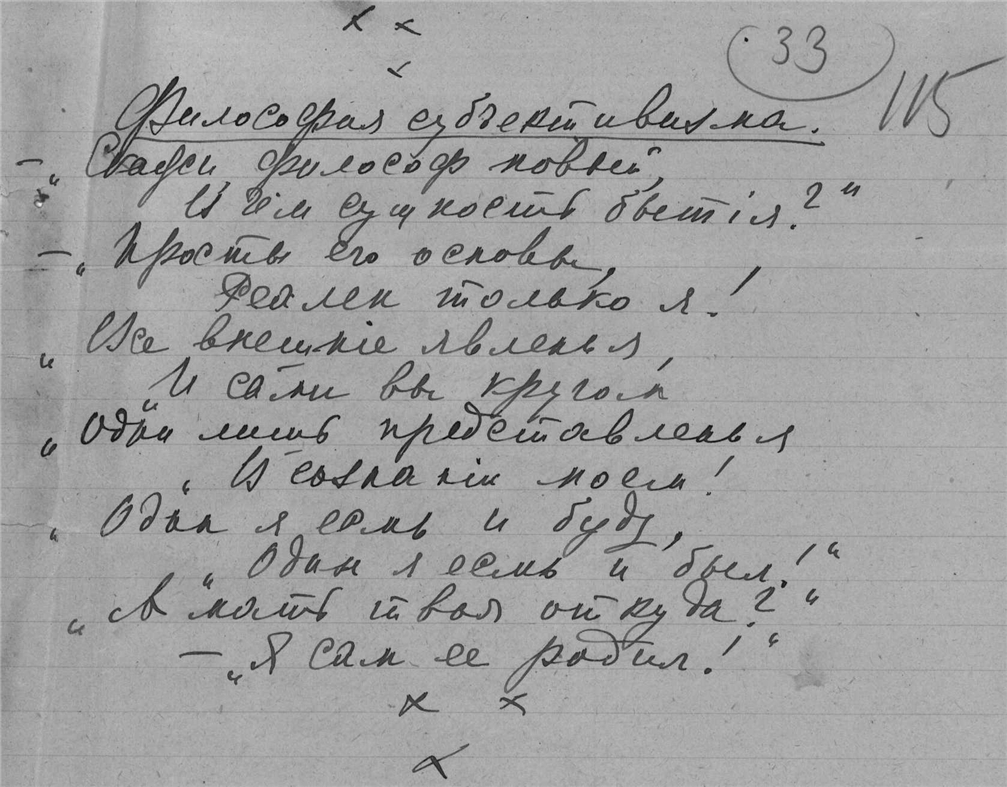 33
115
Философия субъективизма.
— „Скажи, философ новый,
В чем сущность бытія?"
— „Просты его основы,
Реален только я!
„Все внешніе явленья,
„И сами вы кругом
„Одни лишь представленья
„В сознаніи моем!
„Один я есмь и буду,
„Один я есмь и был!"
„А мать твоя откуда?"
— „Я сам ее родил!"